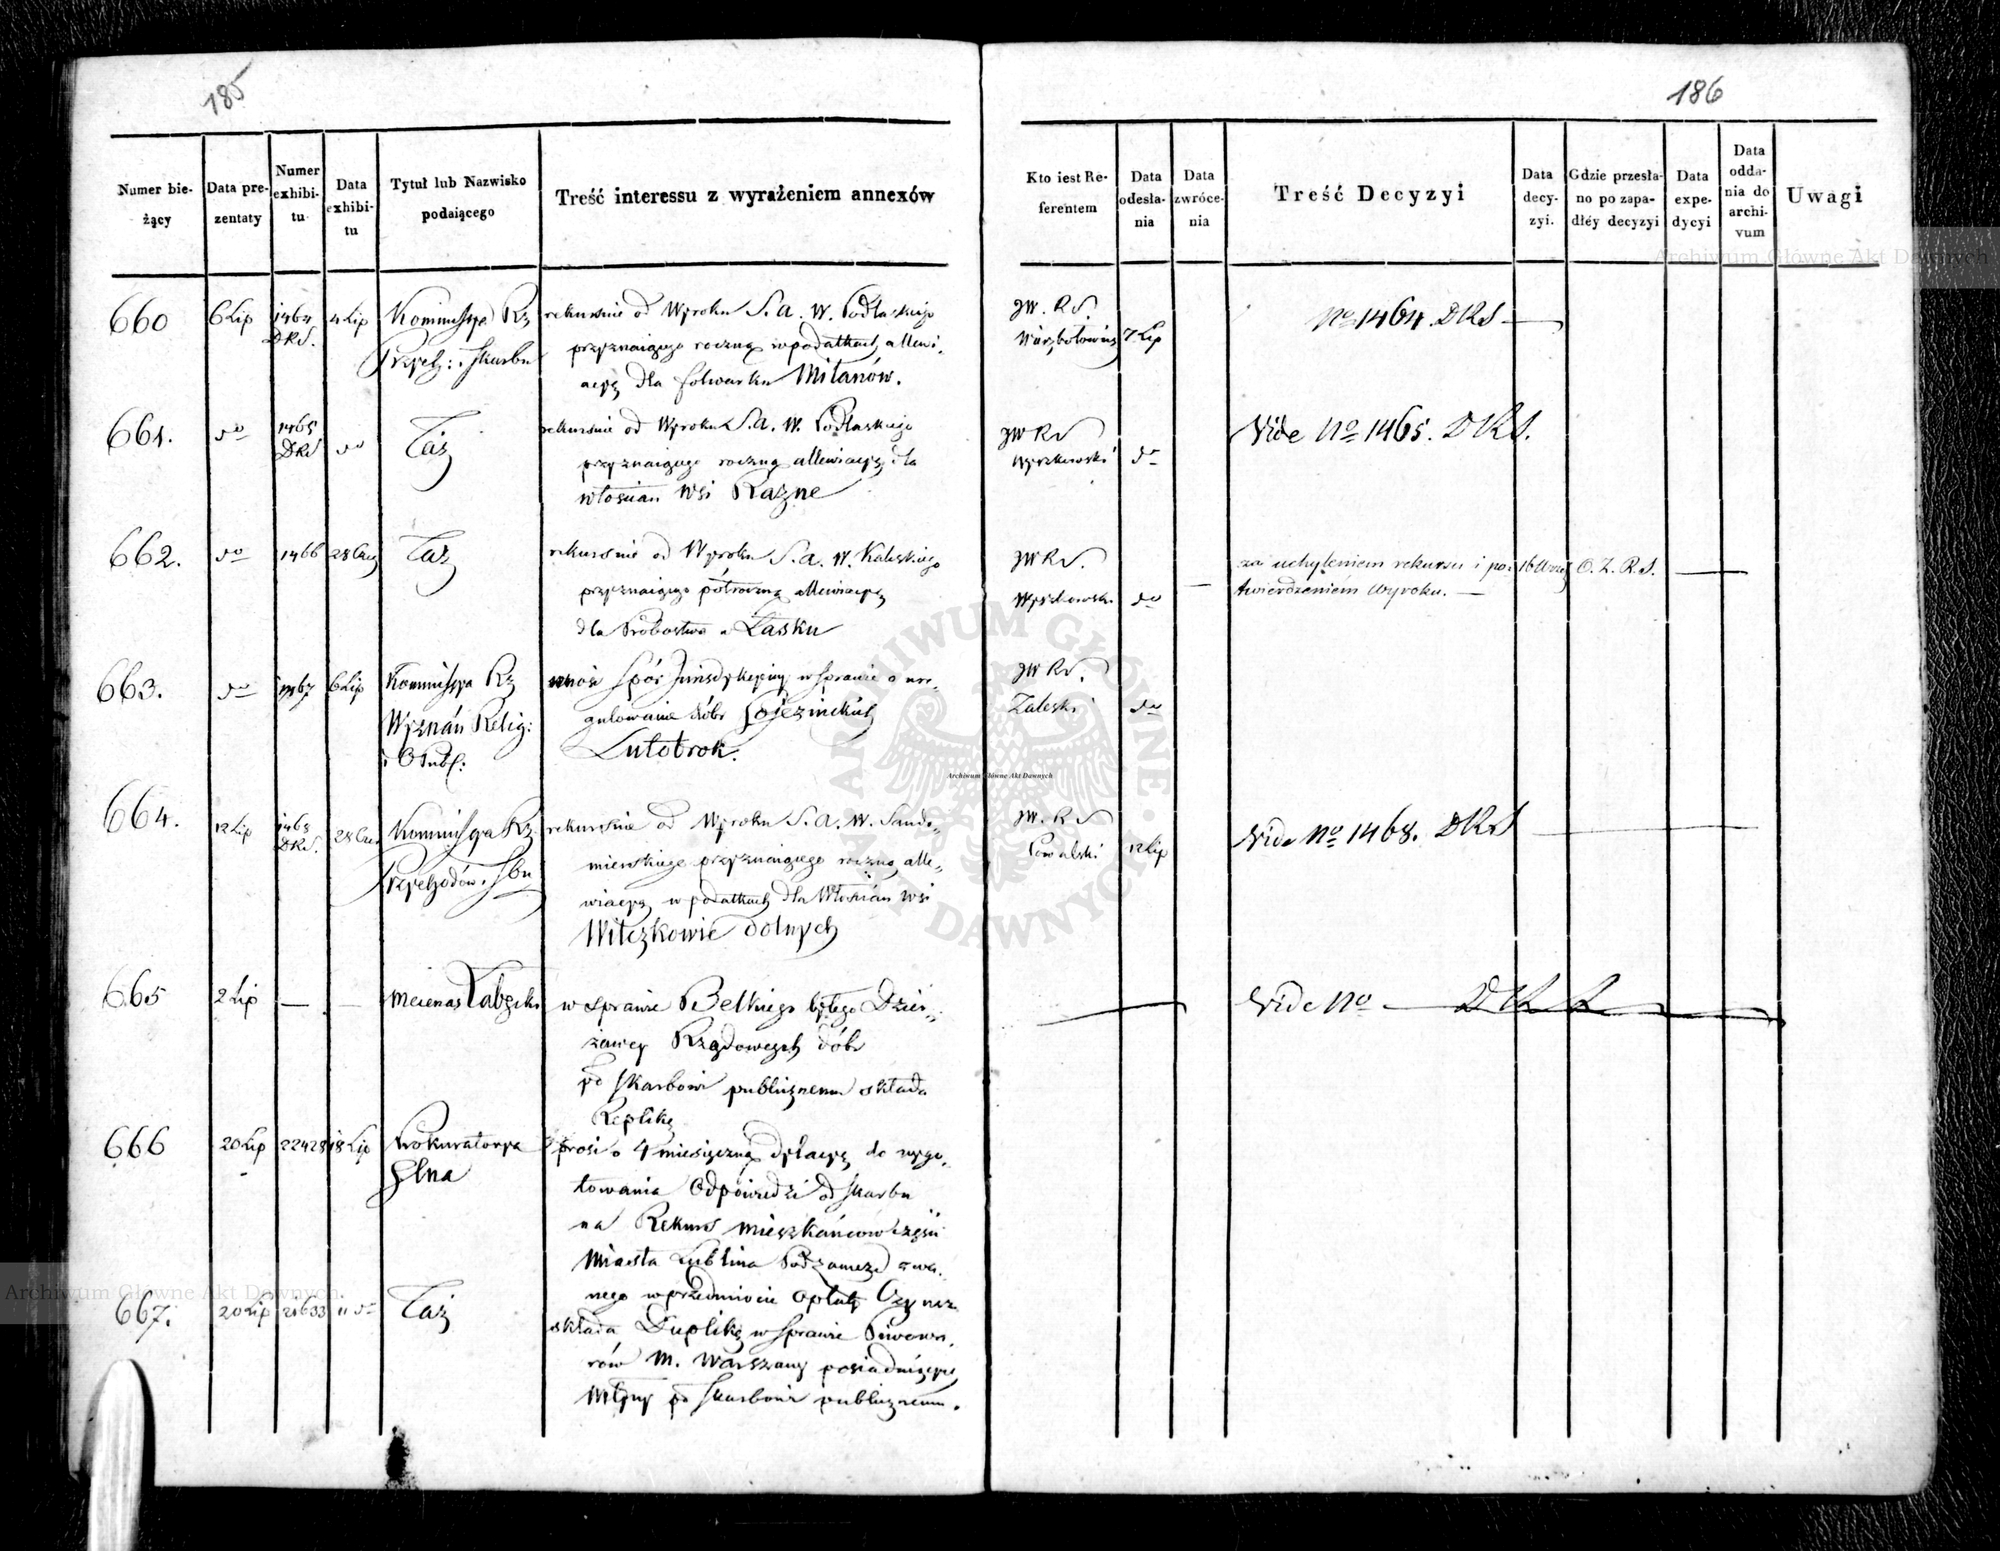 185
Numer bie-
żący
Data pre-
zentaty
Numer
exhibi-
tu
Data
exhibi-
tu
Tytuł lub Nazwisko
podaiącego
Treść interessu z wyrażeniem annexów
660
6 Lip
1464
DRS.
4 Lip
Kommissya Rz
Przych: i Skarbu
rekursuie od Wyroku S. A. W. Podlaskiego
przyznaiącego roczną w podatkach allewi-
acyą dla folwarku Milanów.
661.
do
1465
DRS
do
Taż
rekursuie od Wyroku S. A. W. Podlaskiego
przyznaiącego roczną allewiacyą dla
włościan wsi Razne
662.
do
1466
28 Cze
Taż
rekursuie od Wyroku S. A. W. Kaliskiego
przyznaiącego półroczną allewiacyą
dla Probostwa w Łasku
663.
do
1467
6 Lip
Kommissya Rz
Wyznań Relig:
i O Publ:
wnosi Spór Jurisdykcyiny w sprawie o ure-
gulowanie dóbr
Lutobrok.
664.
12 Lip
1468
DRS.
28 Cze
Kommissya Rz.
Przychodów i Sbu
rekursuie od Wyroku S. A. W. Sando-
mierskiego przyznaiącego roczną alle-
wiacyą w podatkach dla Włościan wsi
Wilczkowic dolnych
665
2 Lip
—
—
Mecenas
w sprawie Belkiego byłego Dzier-
żawcy Rządowych dóbr
po Skarbowi publicznemu składa
Replikę
666
20 Lip
22428
18 Lip
Prokuratorya
Jlna
prosi o 4 miesięczną dylacyą do wygo-
towania Odpowiedzi od Skarbu
na Rekurs mieszkańców części
Miasta Lublina Podzamcze zwa-
nego w przedmiocie opłaty Czynsz
667.
20 Lip
21633
11 do
Taż
składa Duplikę w sprawie Piwowa-
rów M. Warszawy posiadaiących
Młyny po Skarbowi publicznemu.
186
Kto iest Re-
ferentem
Data
odesła-
nia
Data
zwróce-
nia
Treść Decyzyi
Data
decy-
zyi.
Gdzie przesła-
no po zapa-
dłéy decyzyi
Data
expe-
dycyi
Data
odda-
nia do
archi-
vum
Uwagi
JW. RS.
Wierzbołowicz
7 Lip
No 1464. DRS —
JW RS
Wyczkowski
do
Vide No 1465. DRS.
JW RS.
do
—
za uchyleniem rekursu i po-
twierdzeniem Wyroku. —
16 Wrz
O. Z. R. S.
JW RS.
Zaleski
do
JW. RS
Kowalski
12 Lip
Vide No 1468. DRS
Vide No — DRS
Archiwum Główne Akt Dawnych
Archiwum Główne Akt Dawnych
Archiwum Główne Akt Dawnych
ARCHIWUM GŁÓWNE AKT DAWNYCH